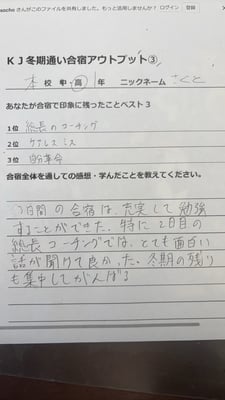 さんがこのファイルを共有しました。もっと活用しませんか？ ログイン 登録
KJ冬期通い合宿アウトプット③
本 校 中 高 1年 ニックネーム さくと
あなたが合宿で印象に残ったことベスト3
1位 総長のコーチング
2位 ケアレスミス
3位 自分革命
合宿全体を通しての感想・学んだことを教えてください。
3日間の合宿は、充実して勉強
することができた。特に2日目の
総長コーチングでは、とても面白い
話が聞けて良かった。冬期の残り
も集中してがんばる